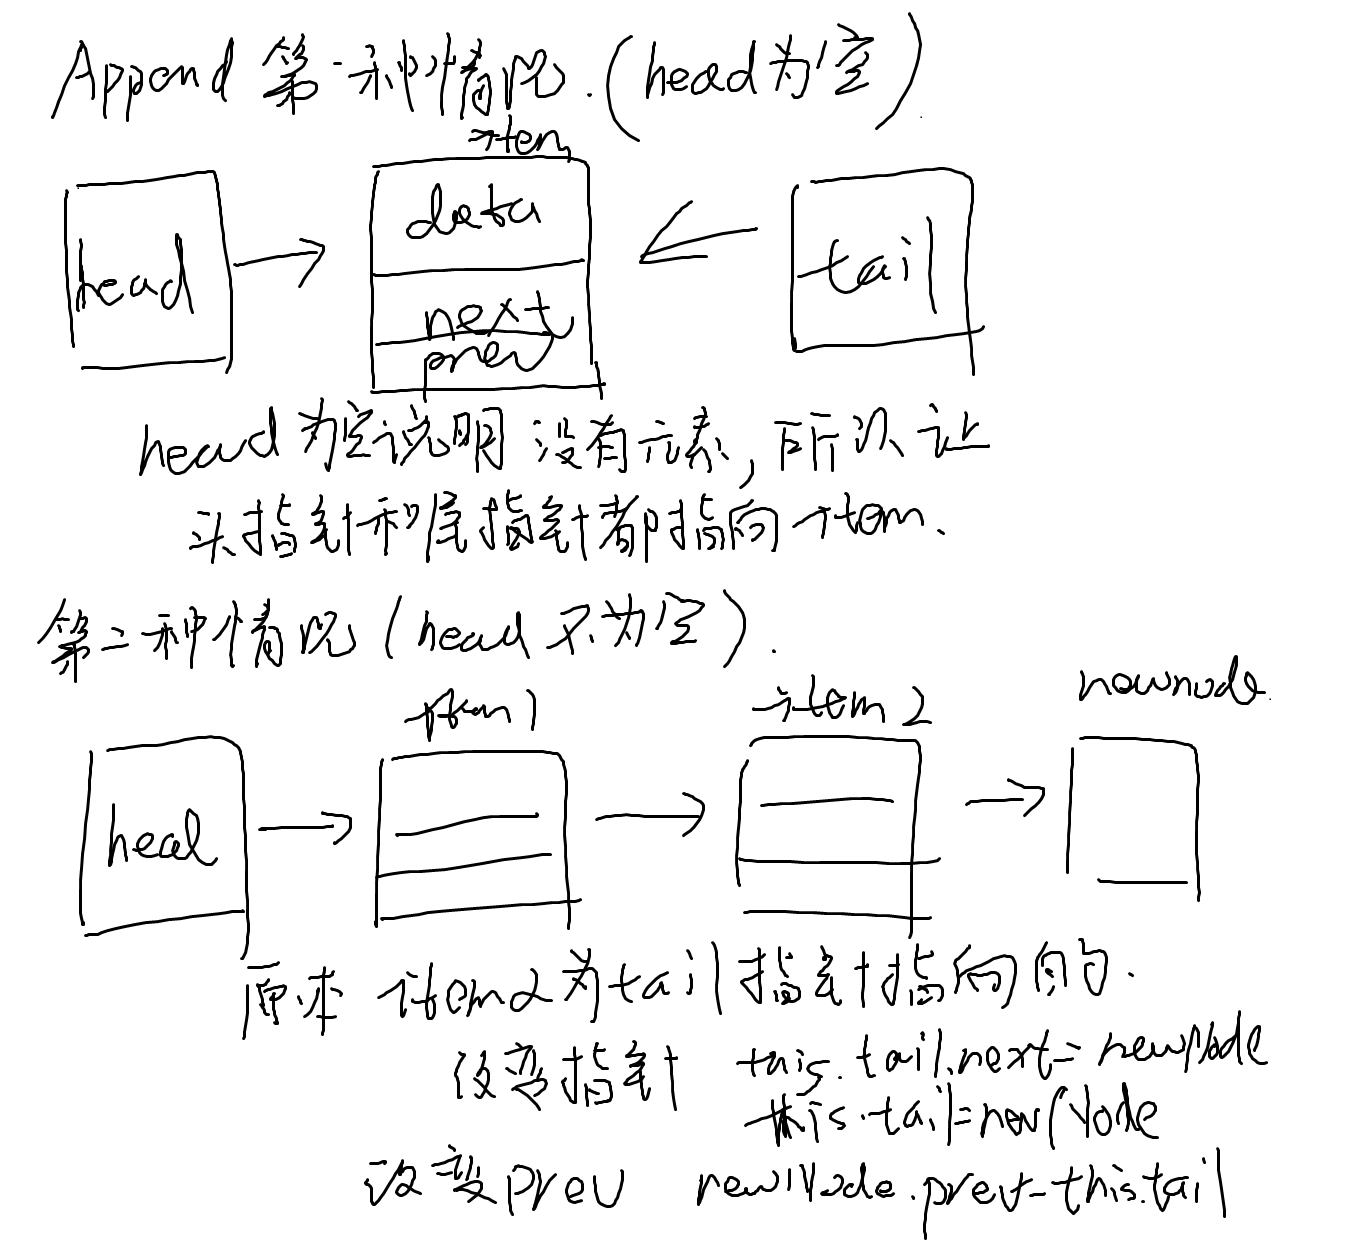 Append 第一种情况.(head为空)
item
head
data
next
prev
tail
head为空说明没有元素,所以让
头指针和尾指针都指向item.
第二种情况(head不为空).
item1
item2
newnode
head
原本 item2为tail指针指向的.
改变指针 this.tail.next=newNode
this.tail=newNode
改变prev newNode.prev=this.tail